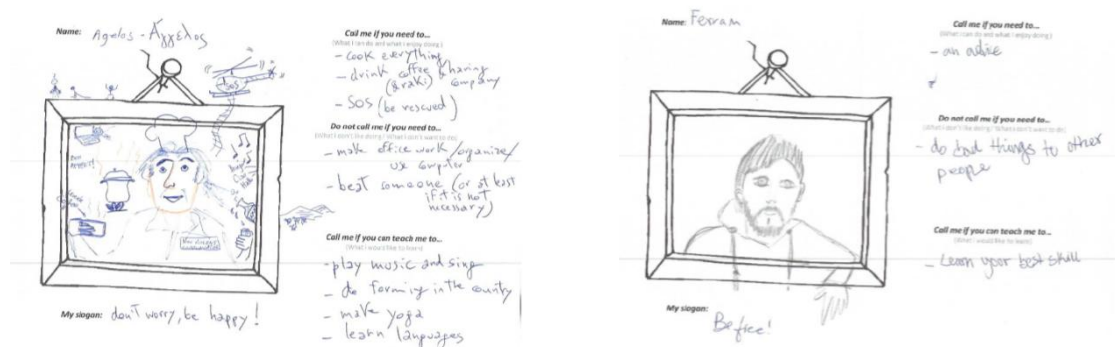 Name: Agelos - Άγγελος
Call me if you need to...
(What I can do and what I enjoy doing)
- cook everything
- drink coffee sharing
(& raki) company
- SOS (be rescued)
Do not call me if you need to...
(What I don't like doing / What I don't want to do)
- make office work / organize /
use computer
- beat someone (or at least
if it is not
necessary)
Call me if you can teach me to...
(What I would like to learn)
- play music and sing
- do farming in the country
- make yoga
- learn languages
SOS
My slogan: don't worry, be happy!
Name: Ferram
Call me if you need to...
(What I can do and what I enjoy doing)
- an advice
Do not call me if you need to...
(What I don't like doing / What I don't want to do)
- do bad things to other
people
Call me if you can teach me to...
(What I would like to learn)
- Learn your best skill
My slogan: Be free!